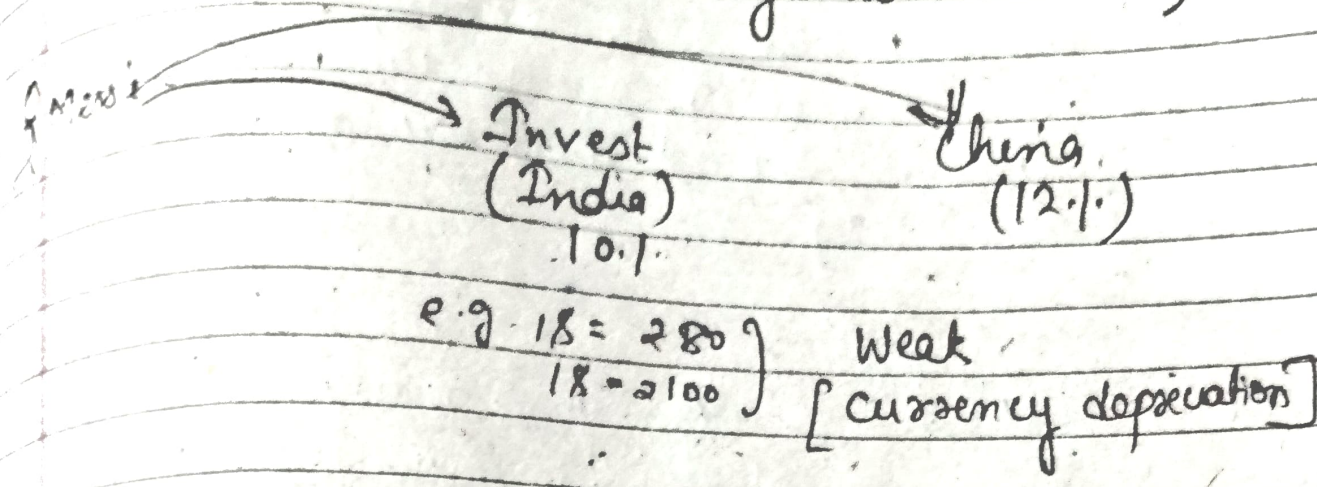 Invest
(India)
10%
China
(12%)
e.g. 1$ = ₹80
1$ = ₹100
Weak
[currency depreciation]